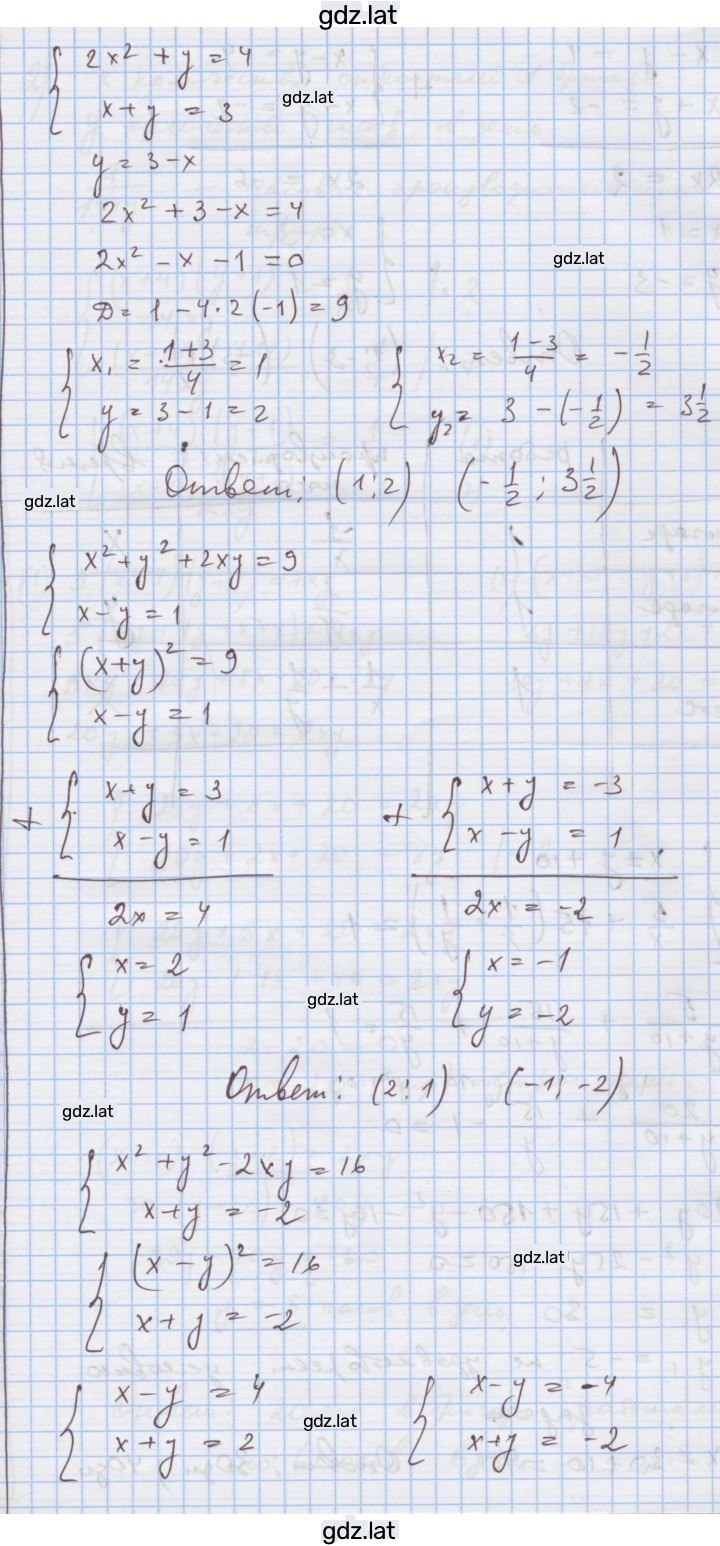 gdz.lat
{ 2x² + y = 4
x + y = 3
gdz.lat
y = 3 - x
2x² + 3 - x = 4
2x² - x - 1 = 0
gdz.lat
D = 1 - 4 · 2 (-1) = 9
{ x₁ = (1+3)/4 = 1
y = 3 - 1 = 2
{ x₂ = (1-3)/4 = -1/2
y₂ = 3 - (-1/2) = 3 1/2
Ответ: (1; 2) (-1/2; 3 1/2)
gdz.lat
{ x² + y² + 2xy = 9
x - y = 1
{ (x+y)² = 9
x - y = 1
+ { x + y = 3
x - y = 1
2x = 4
{ x = 2
y = 1
+ { x + y = -3
x - y = 1
2x = -2
{ x = -1
y = -2
gdz.lat
Ответ: (2; 1) (-1; -2)
gdz.lat
{ x² + y² - 2xy = 16
x + y = -2
{ (x - y)² = 16
x + y = -2
gdz.lat
{ x - y = 4
x + y = 2
gdz.lat
{ x - y = -4
x + y = -2
gdz.lat